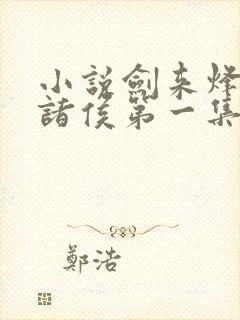 小説劍来烽
諸侯第一集
鄭浩